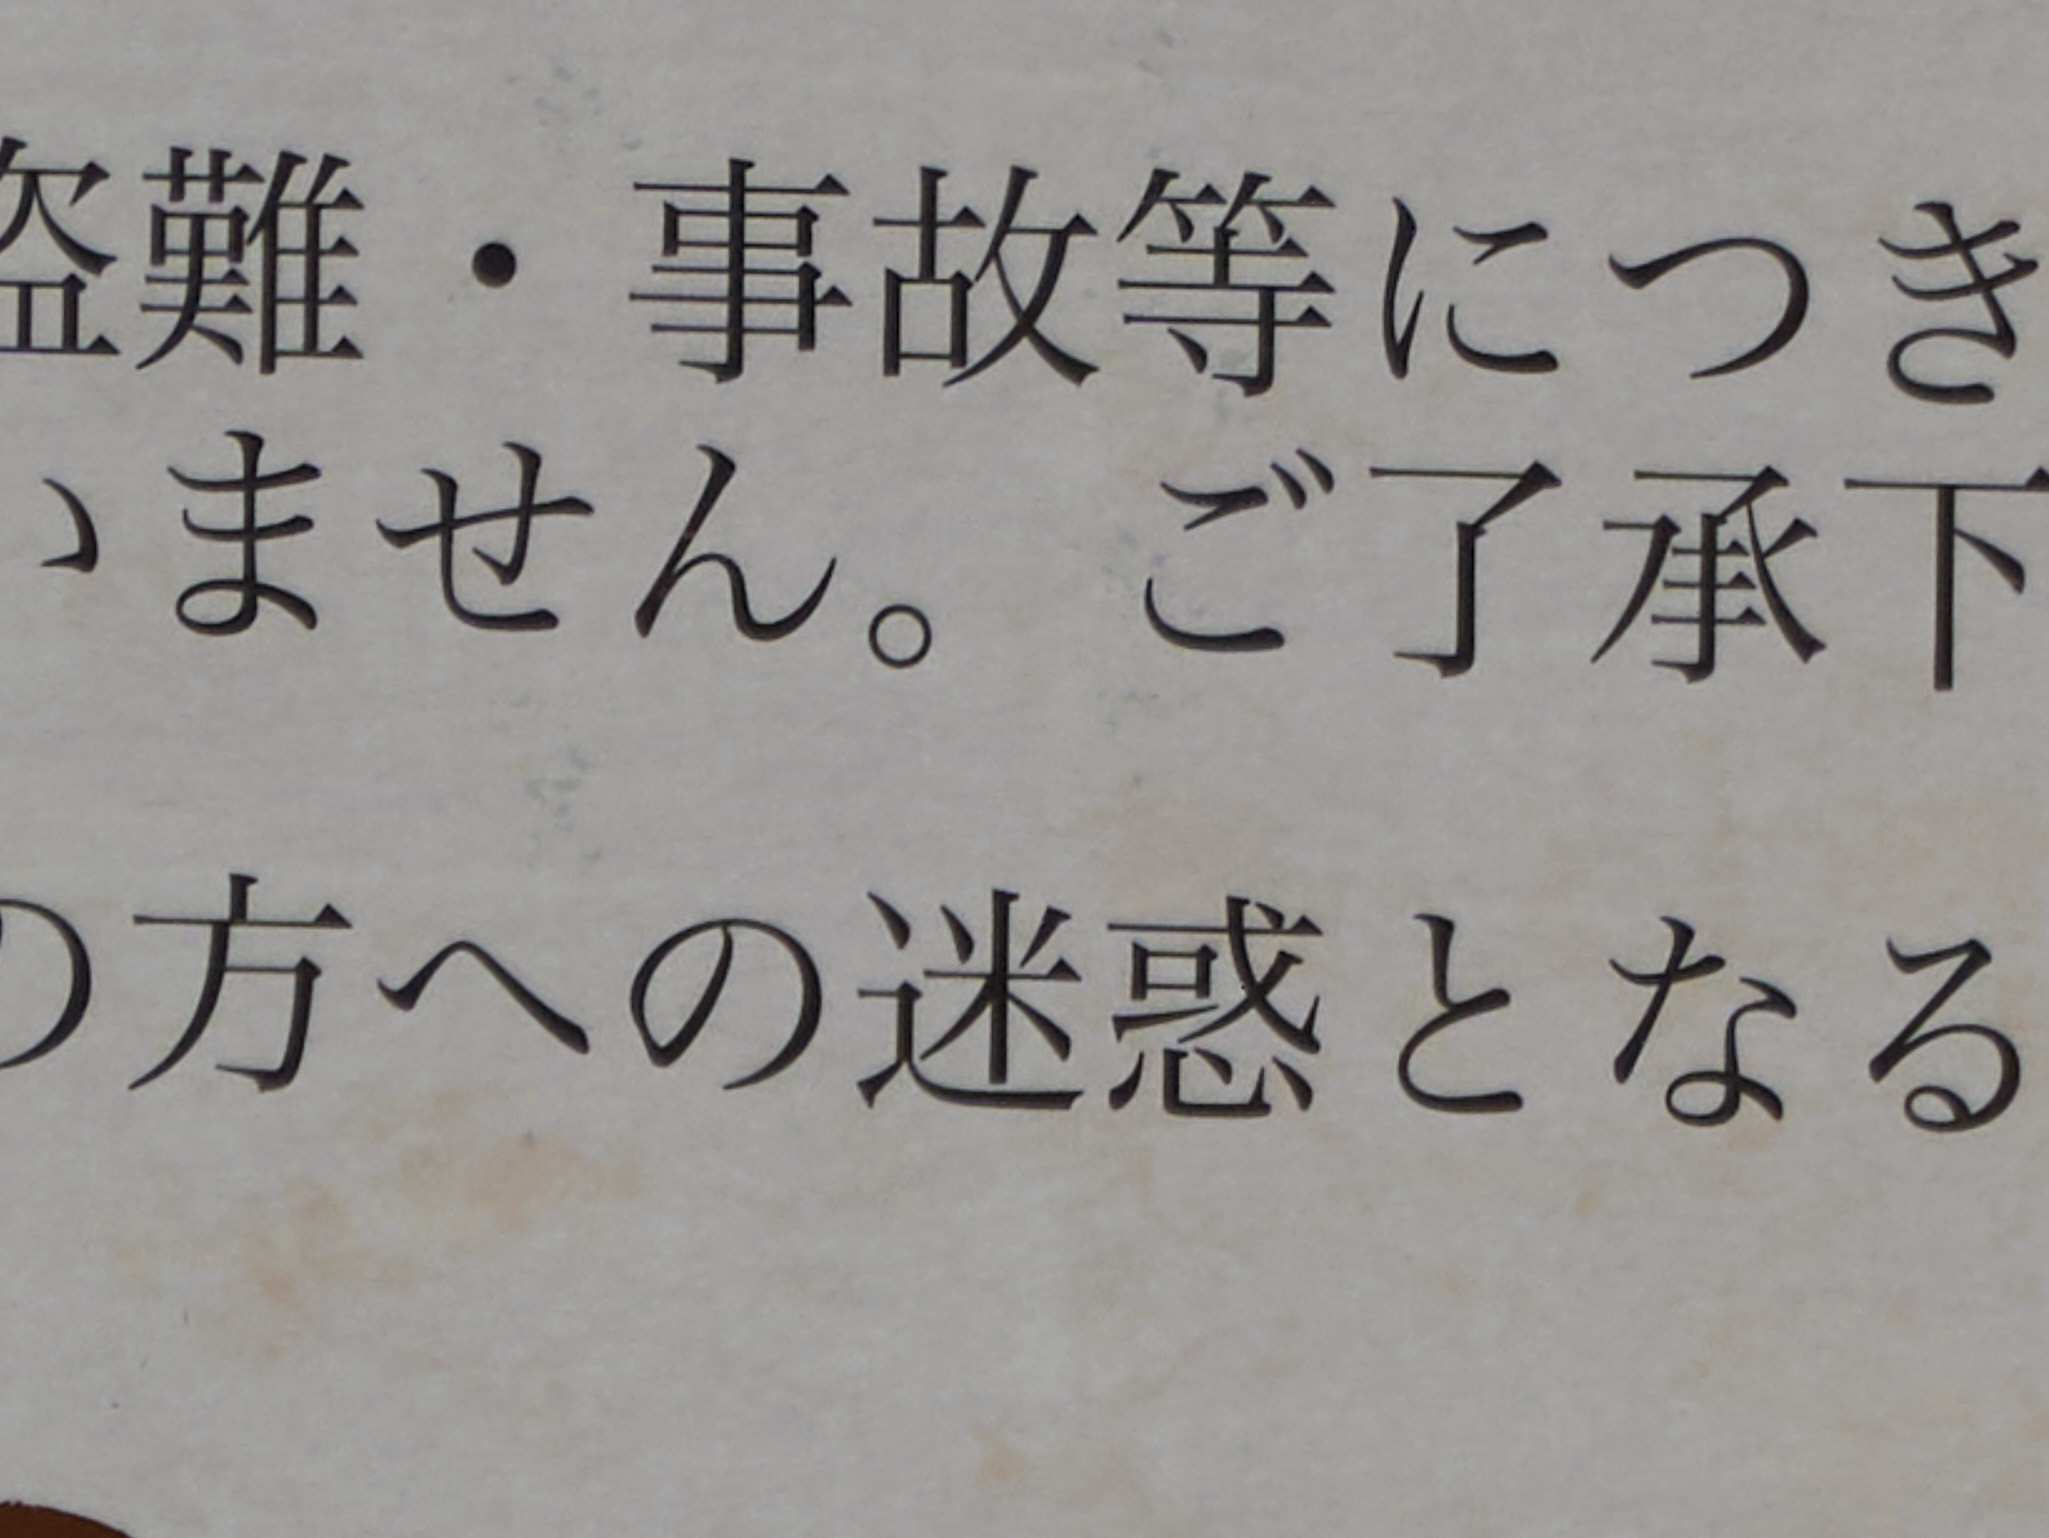 盗難・事故等につき
いません。ご了承下
の方への迷惑となる